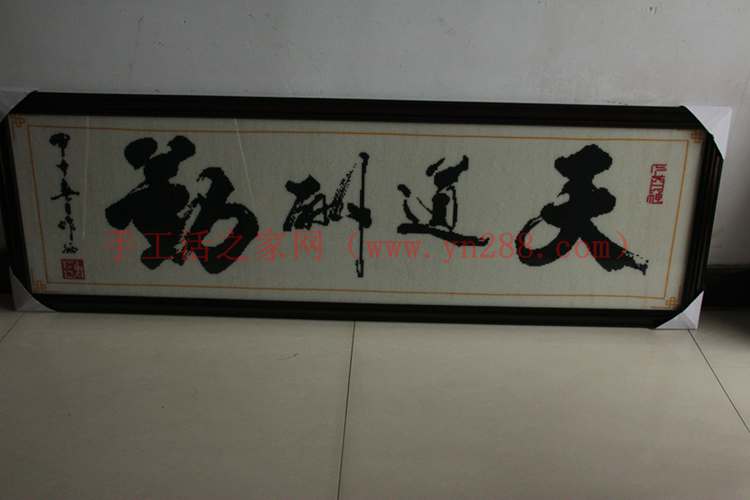 天道酬勤
手工活之家网（www.yn288.com）